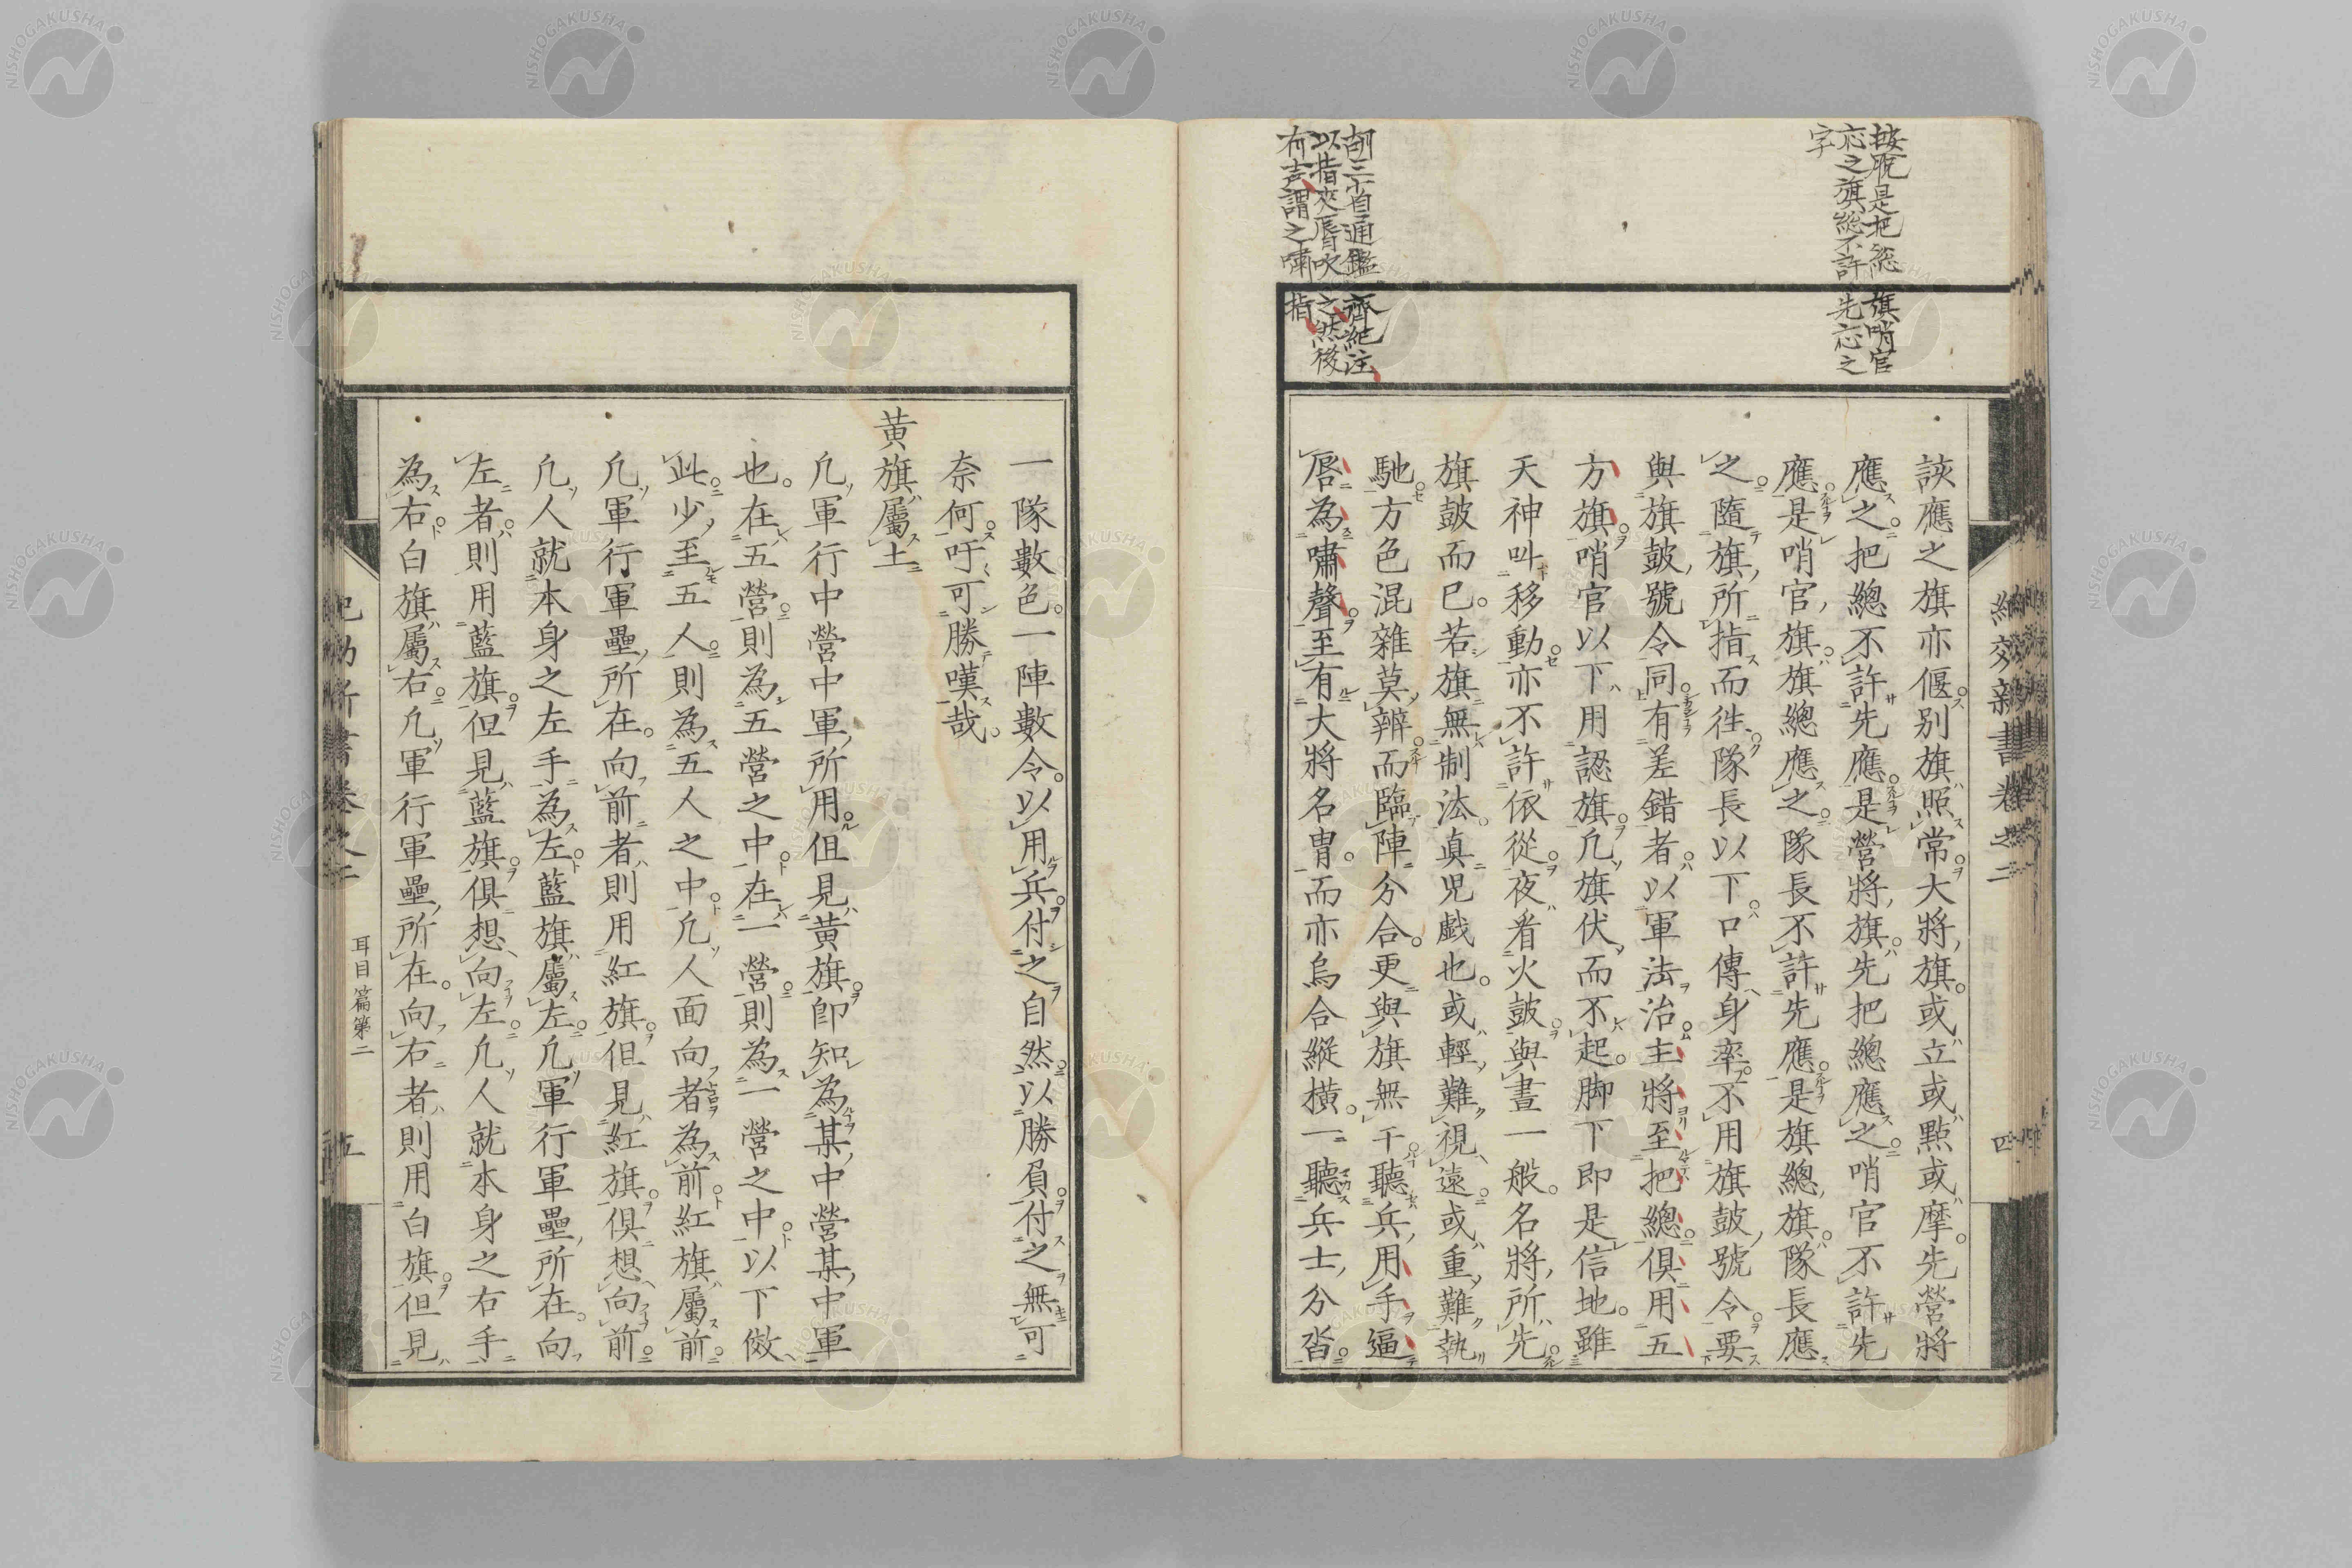 按脫是把總旗哨官
応之旗總不許先応之
字
胡三省通鑑齊紀注
以指夾唇吹之然後
有声謂之嘯指
該應之旗亦偃別旗照常大將旗或立或點或摩先營將
應之把總不許先應是營將旗先把總應之哨官不許先
應是哨官旗旗總應之隊長不許先應是旗總旗隊長應
之隨旗所指而徃隊長以下口傳身率不用旗鼓號令要
與旗鼓號令同有差錯者以軍法治主將至把總俱用五
方旗哨官以下用認旗凢旗伏而不起脚下即是信地雖
天神叫移動亦不許依從夜看火鼓與晝一般名將所先
旗鼓而已若旗無制法真児戯也或輕難視遠或重難執
馳方色混雜莫辨而臨陣分合更與旗無干聽兵用手逼
唇為嘯聲至有大將名胄而亦烏合縱橫一聽兵士分沓
紀効新書卷之二
四
一隊數色一陣數令以用兵付之自然以勝負付之無可
奈何吁可勝嘆哉
黄旗屬土
凢軍行中營中軍所用但見黄旗卽知為某中營某中軍
也在五營則為五營之中在一營則為一營之中以下倣
此少至五人則為五人之中凢人面向者為前紅旗屬前
凢軍行軍壘所在向前者則用紅旗但見紅旗俱想向前
凢人就本身之左手為左藍旗屬左凢軍行軍壘所在向
左者則用藍旗但見藍旗俱想向左凢人就本身之右手
為右白旗屬右凢軍行軍壘所在向右者則用白旗但見
紀効新書卷之二
耳目篇第二
五
NISHOGAKUSHA